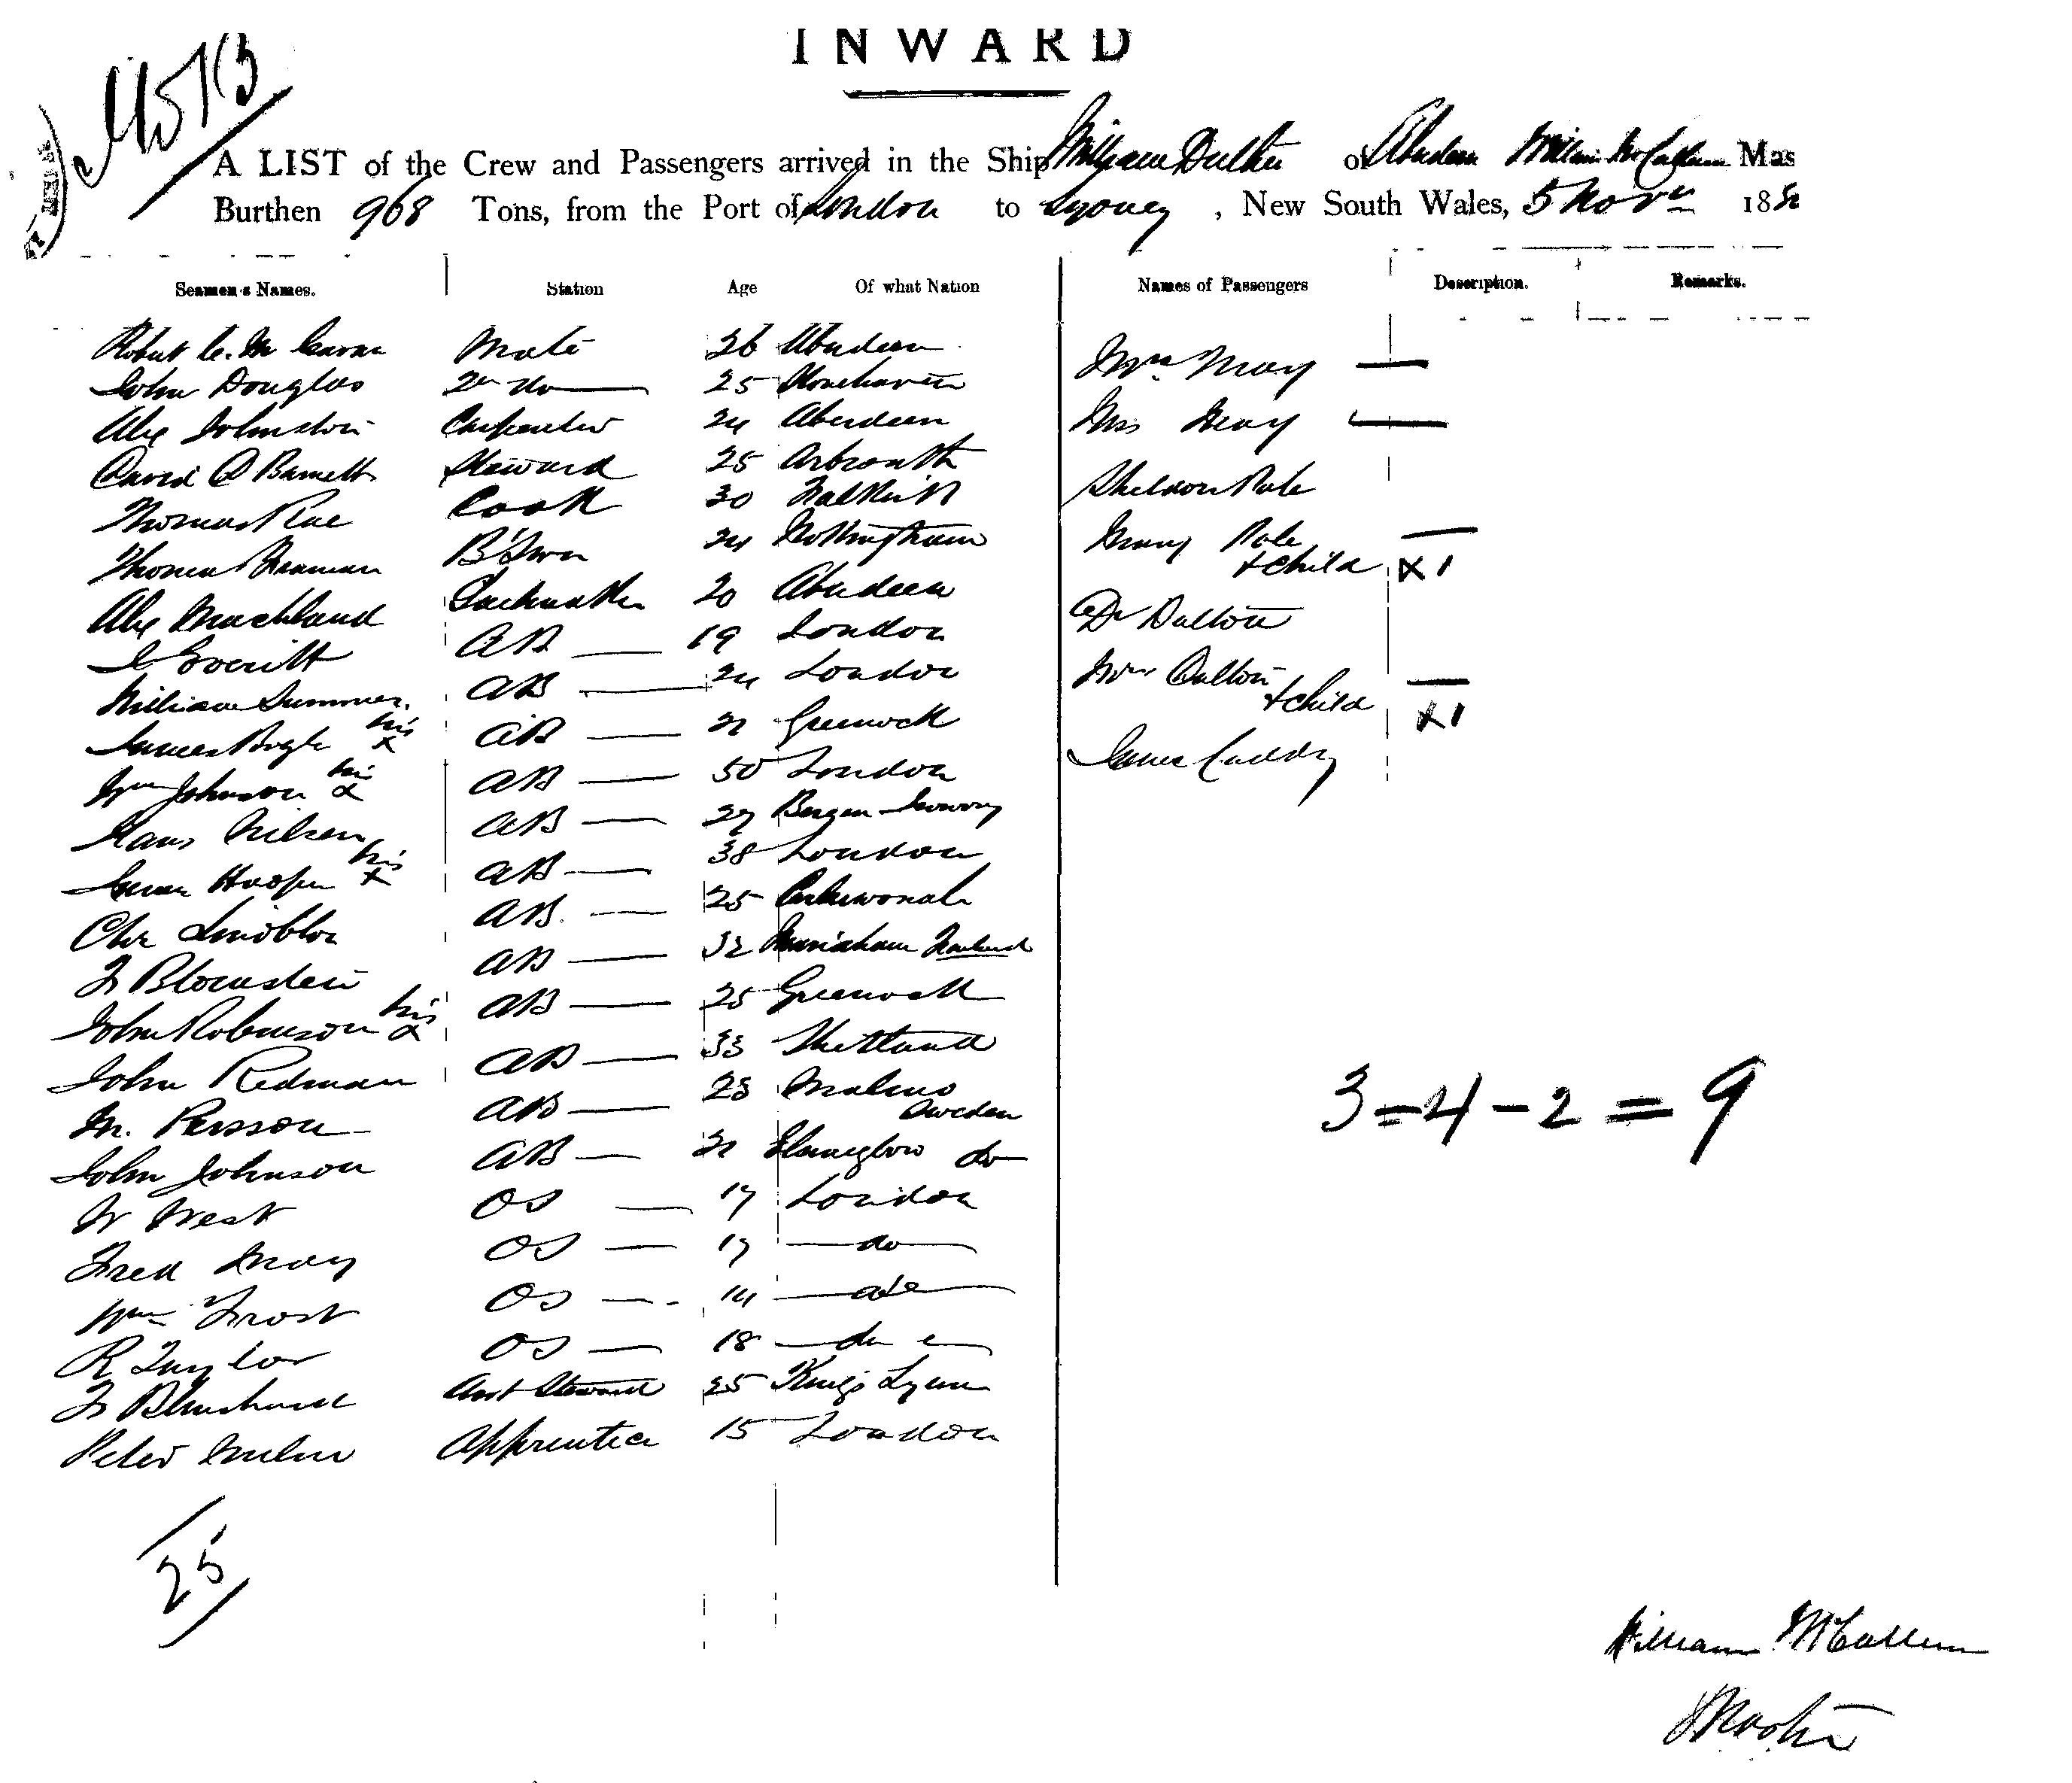 INWARD
A LIST of the Crew and Passengers arrived in the Ship William Duthie of Aberdeen William McCallum Mas
Burthen 968 Tons, from the Port of London to Sydney, New South Wales, 5 Novr 188
Seamen's Names. Station Age Of what Nation Names of Passengers Description. Remarks.
Robert Mate 26 Aberdeen
John Douglas 2nd do 25 Stonehaven
Alex Johnston Carpenter 24 Aberdeen
David D Barnett Steward 25 Arbroath
Thomas Rae Cook 30 Falkirk
Thomas B'Swn 24 Nottingham
Alex Sailmaker 20 Aberdeen
Everitt AB 19 London
William Summers AB 24 London
James Bogle his x AB 21 Greenock
Wm Johnson his x AB 50 London
Hans Nilsen AB 27 Bergen Norway
James Hooper his x AB 38 London
Chr AB. 25
AB 32
John Robinson his x AB 25 Greenock
John Redman AB 33 Shetland
M. Persson AB 23 Malmo Sweden
John Johnson AB 21 do
W West OS 17 London
Fred May OS 17 do
Wm Frost OS 14 do
R Taylor OS 18 do
Asst Steward 25 Kings Lynn
Peter Milne Apprentice 15 London
25
Mrs May
Miss May
Sheldon Pole
Mary Pole
+ child x 1
Dr Dalton
Mrs Dalton
+ child x 1
James Caddy
3 = 4 - 2 = 9
William McCallum
Master